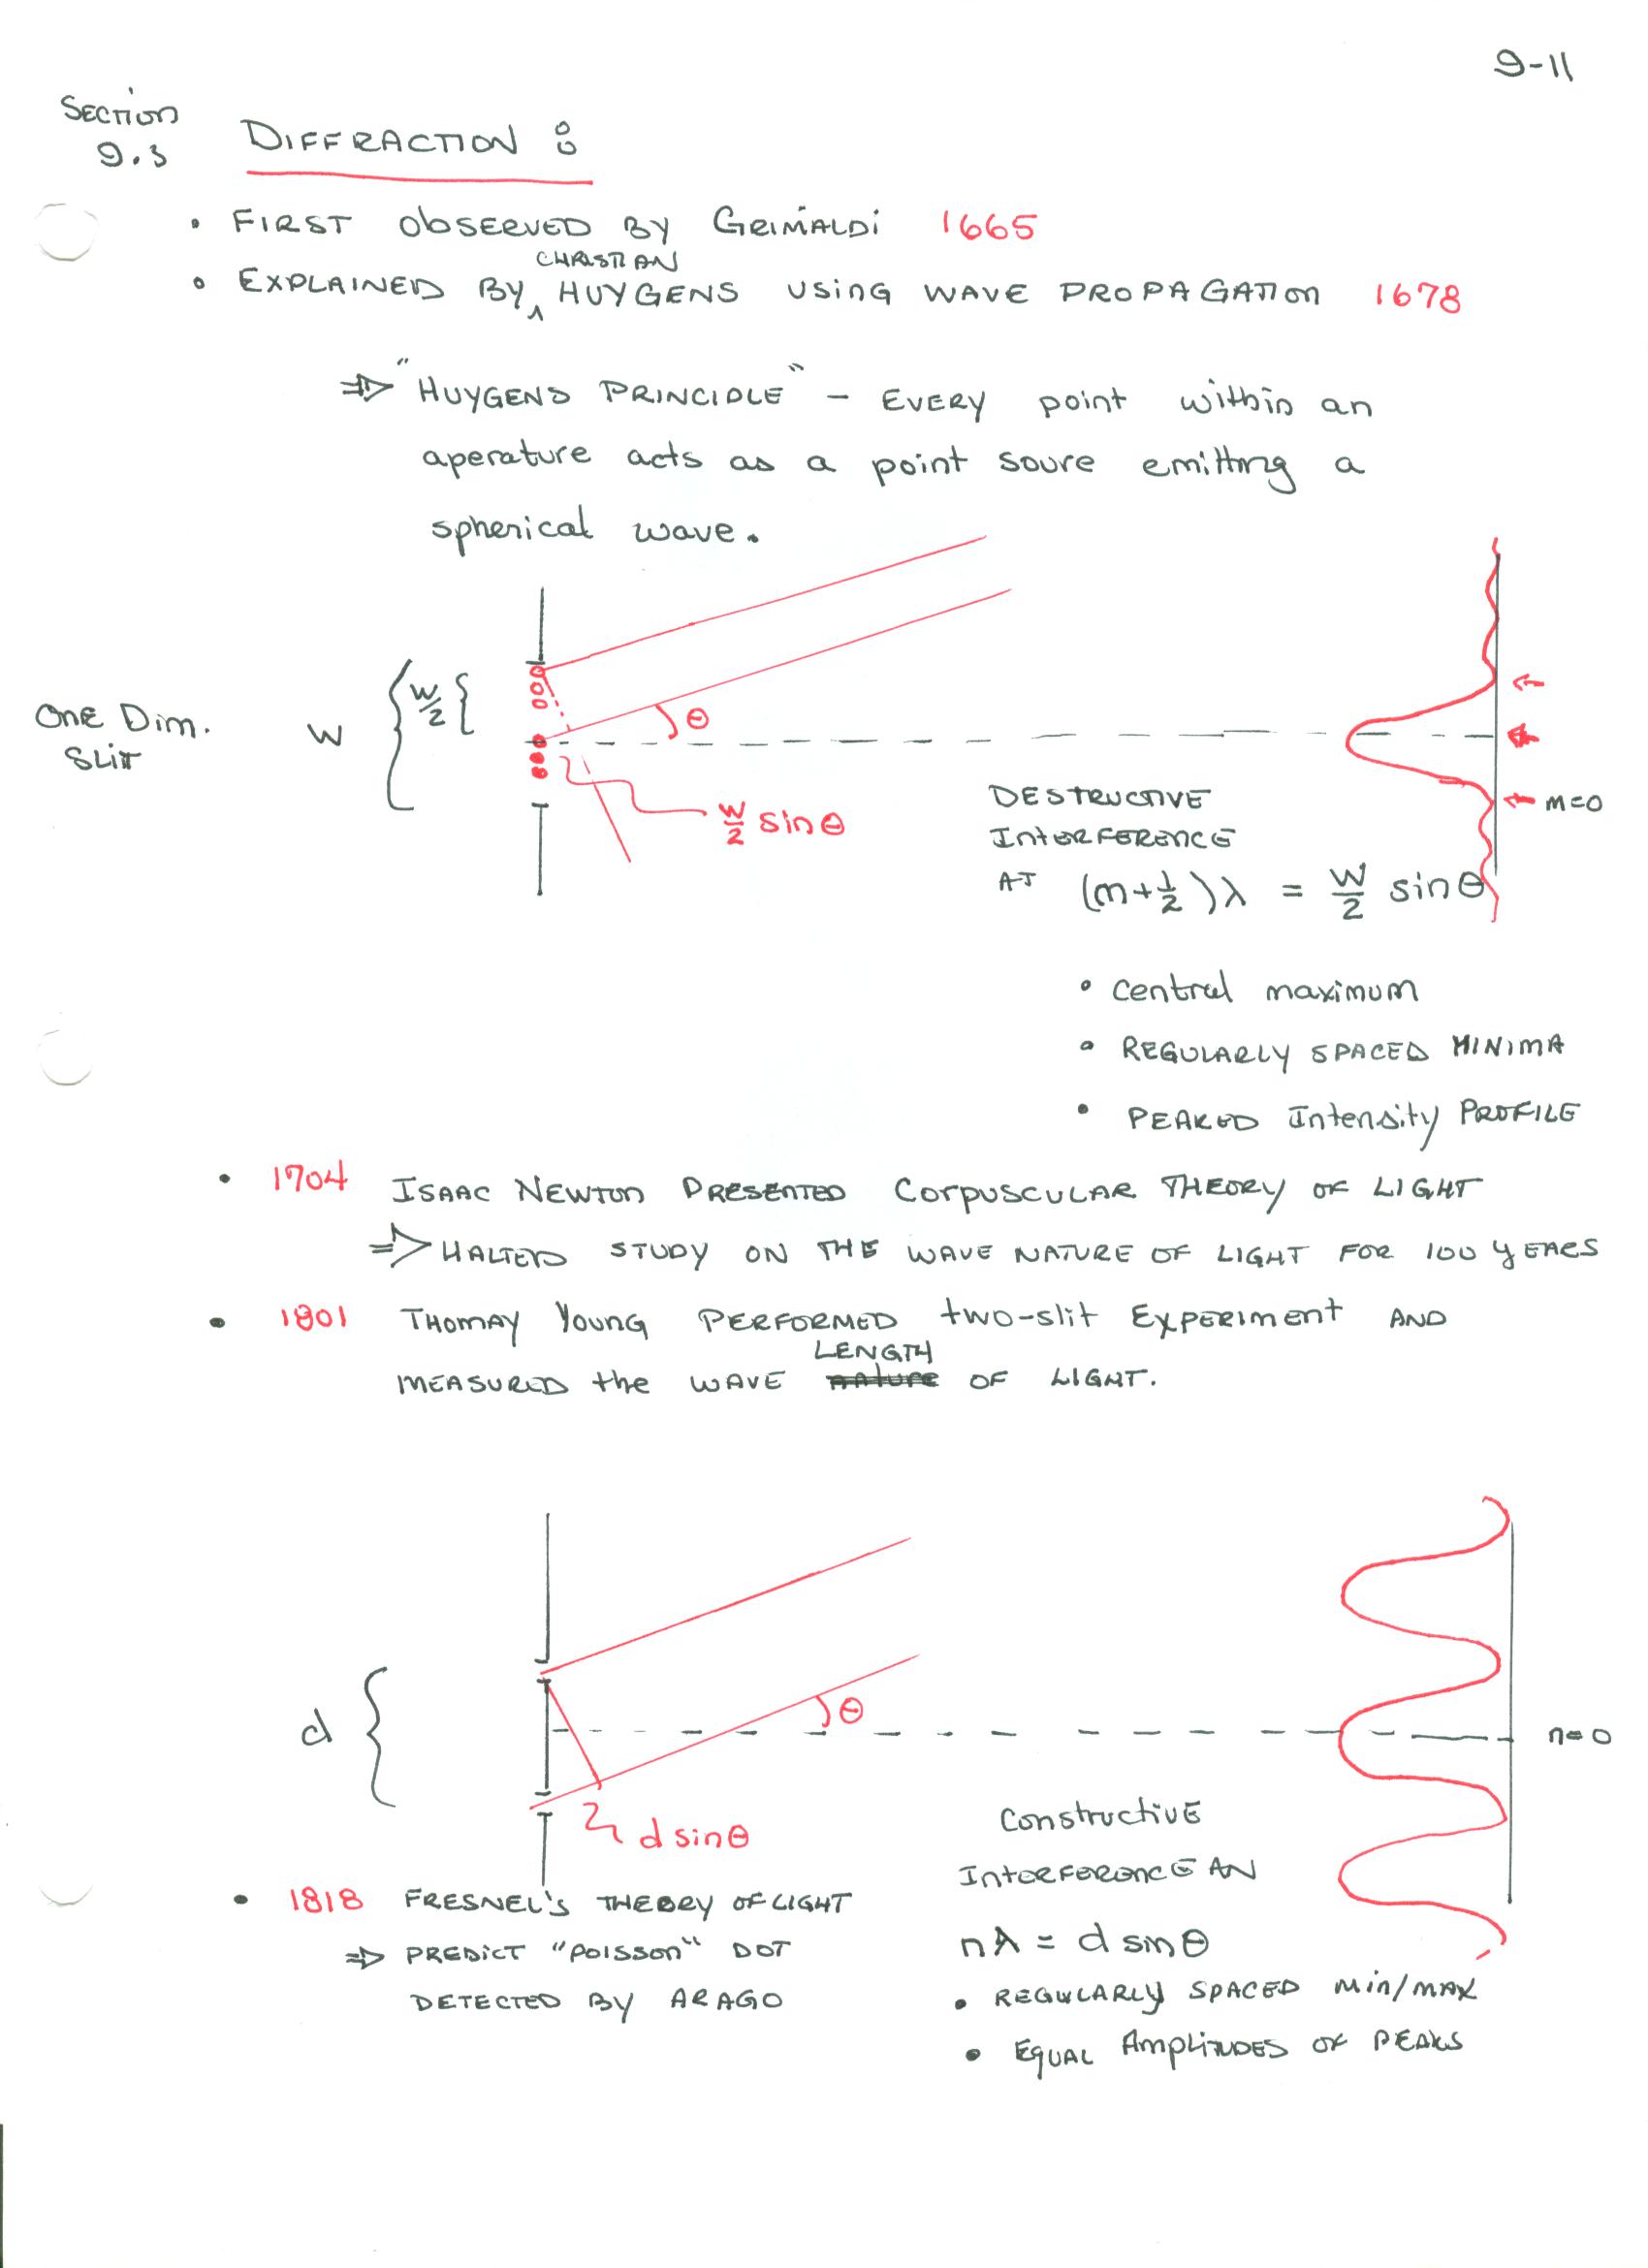 9-11
Section
9.3
DIFFRACTION :
• FIRST ObSERVED BY GRIMALDI 1665
CHRISTIAN
• EXPLAINED BY ^ HUYGENS USING WAVE PROPAGATION 1678
⇒ "HUYGENS PRINCIPLE" – EVERY point within an
aperature acts as a point soure emitting a
spherical wave.
W
W/2
θ
One Dim.
Slit
W/2 sin θ
m=0
DESTRUCTIVE
INTERFERENCE
AT (m+1/2)λ = W/2 sinθ
• Central maximum
• REGULARLY SPACED MINIMA
• PEAKED Intensity PROFILE
• 1704 ISAAC NEWTON PRESENTED CORPUSCULAR THEORY OF LIGHT
⇒ HALTED STUDY ON THE WAVE NATURE OF LIGHT FOR 100 YEARS
• 1801 THOMAY Young PERFORMED two-slit EXPERIMENT AND
LENGTH
MEASURED the WAVE nature OF LIGHT.
d
θ
n=0
d sinθ
Constructive
INTERFERENCE AN
nλ = d sinθ
• REGULARLY SPACED Min/MAX
• EQUAL AMPLITUDES OF PEAKS
• 1818 FRESNEL'S THEORY OF LIGHT
⇒ PREDICT "POISSON" DOT
DETECTED BY ARAGO